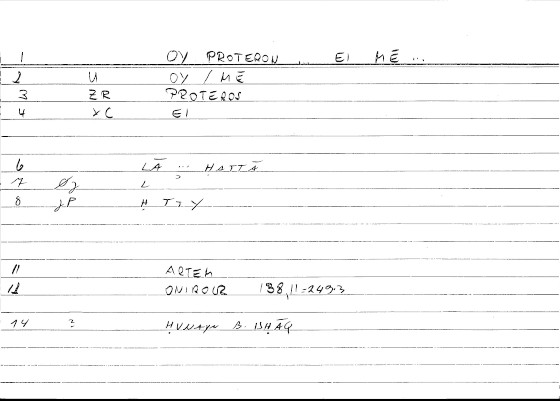 1 OY PROTERON ... EI MĒ ...
2 U OY / MĒ
3 ZR PROTEROS
4 XC EI
6 LĀ ... ḤATTĀ
7 L
8 JP Ḥ T J Y
11 ARTEM
12 ONIROCR 138,11=249.3
14 ? ḤUNAYN B. ISḤĀQ